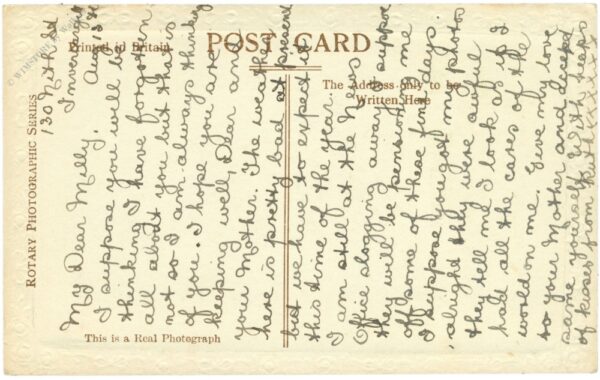 POST CARD
Printed in Britain
The Address only to be
Written Here
ROTARY PHOTOGRAPHIC SERIES
This is a Real Photograph
130 Nith St
Invercargill
Aug 13
My Dear Milly,
I suppose you will be
thinking I have forgotten
all about you but this is
not so I am always thinking
of you. I hope you are
keeping well, Dear and
your Mother. The weather
here is pretty bad at present
but we have to expect it
this time of the year.
I am still at the News
Office slogging away suppose
they will be pensioning me
off some of these fine days
I suppose you got my photos
alright they were awful
they tell me I look as if I
had all the cares of the
world on me. Give my love
to your Mother and accept
same yourself With heaps
of kisses from